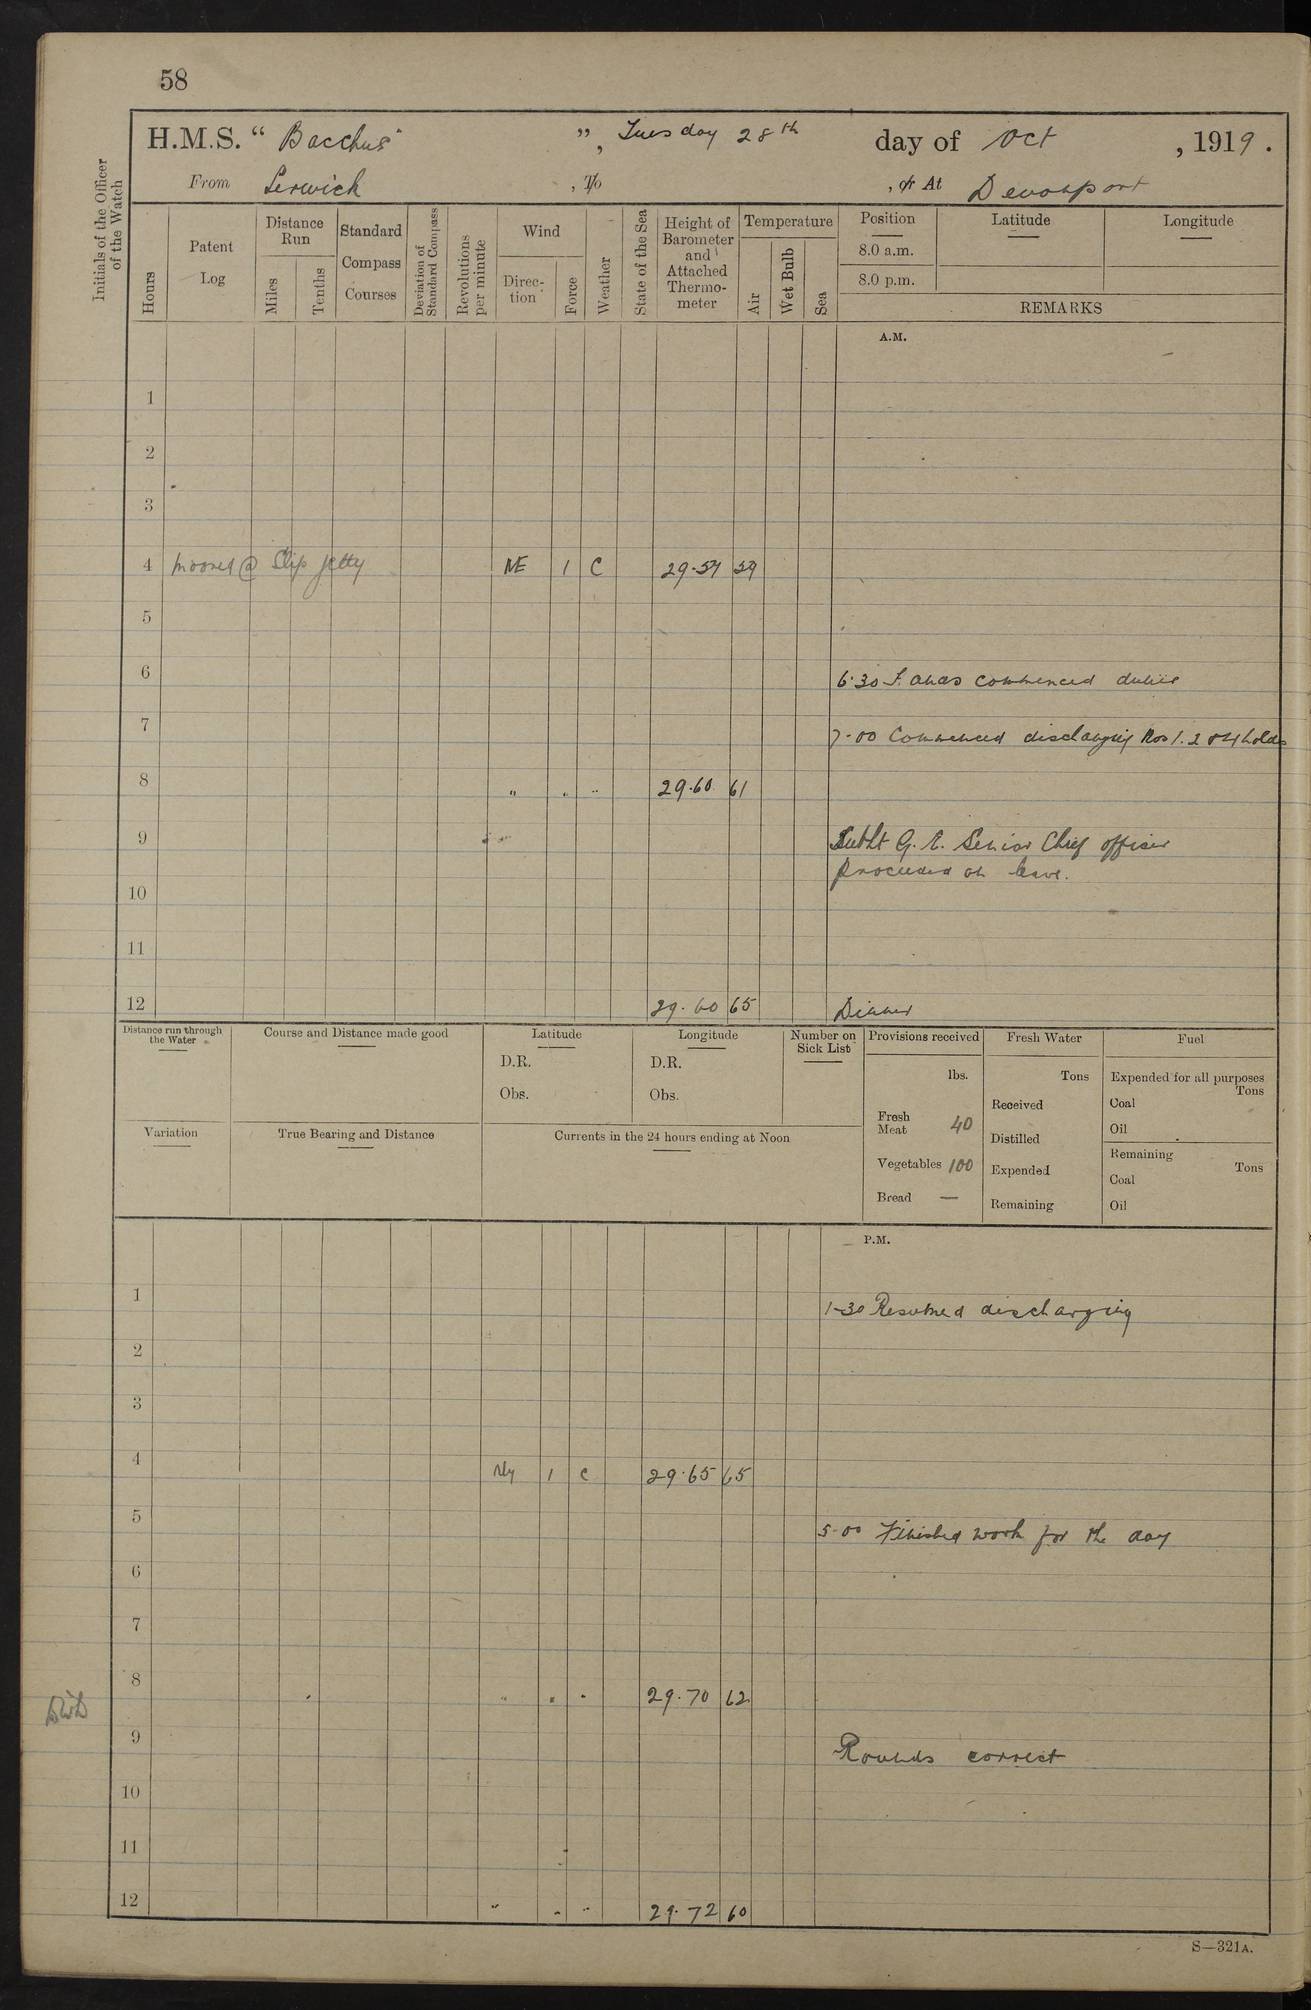 58
H.M.S. " Bacchus ", Tuesday 28th day of Oct , 1919 .
From Lerwick , To , or At Devonport
Initials of the Officer of the Watch
Hours
Patent Log
Distance Run
Miles
Tenths
Standard Compass Courses
Deviation of Standard Compass
Revolutions per minute
Wind
Direction
Force
Weather
State of the Sea
Height of Barometer and Attached Thermometer
Temperature
Air
Wet Bulb
Sea
Position Latitude Longitude
8.0 a.m.
8.0 p.m.
REMARKS
A.M.
1
2
3
4 Moored @ Slip Jetty NE 1 C 29.59 59
5
6
6.30 commenced duties
7
7.00 Commenced discharging Nos 1. 2 & 4 holds
8 " " " 29.60 61
9
Sublt G. E. Senior Chief officer
proceeded on leave.
10
11
12 29.60 65 Dinner
Distance run through the Water
Course and Distance made good
Latitude
D.R.
Obs.
Longitude
D.R.
Obs.
Number on Sick List
Provisions received
lbs.
Fresh Meat 40
Vegetables 100
Bread —
Fresh Water
Tons
Received
Distilled
Expended
Remaining
Fuel
Expended for all purposes
Tons
Coal
Oil
Remaining
Tons
Coal
Oil
Variation
True Bearing and Distance
Currents in the 24 hours ending at Noon
P.M.
1
1-30 Resumed discharging
2
3
4 Nly 1 c 29.65 65
5
5-00 Finished work for the day
6
7
8 " " " 29.70 62
9
Rounds correct
10
11
12 " " " 29.72 60
S—321A.